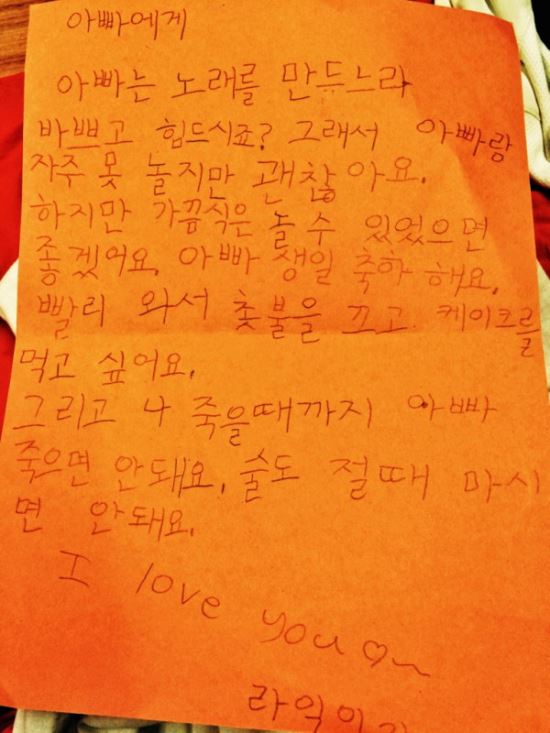 아빠에게
아빠는 노래를 만듀느라
바쁘고 힘드시죠? 그래서 아빠랑
자주 못 놀지만 괜찮아요.
하지만 가끔식은 놀 수 있었으면
좋겠어요. 아빠 생일 축하 해요.
빨리 와서 촛불을 끄고 케이크를
먹고 싶어요.
그리고 나 죽을때까지 아빠
죽으면 안돼요. 술도 절때 마시
면 안돼요.
I love you